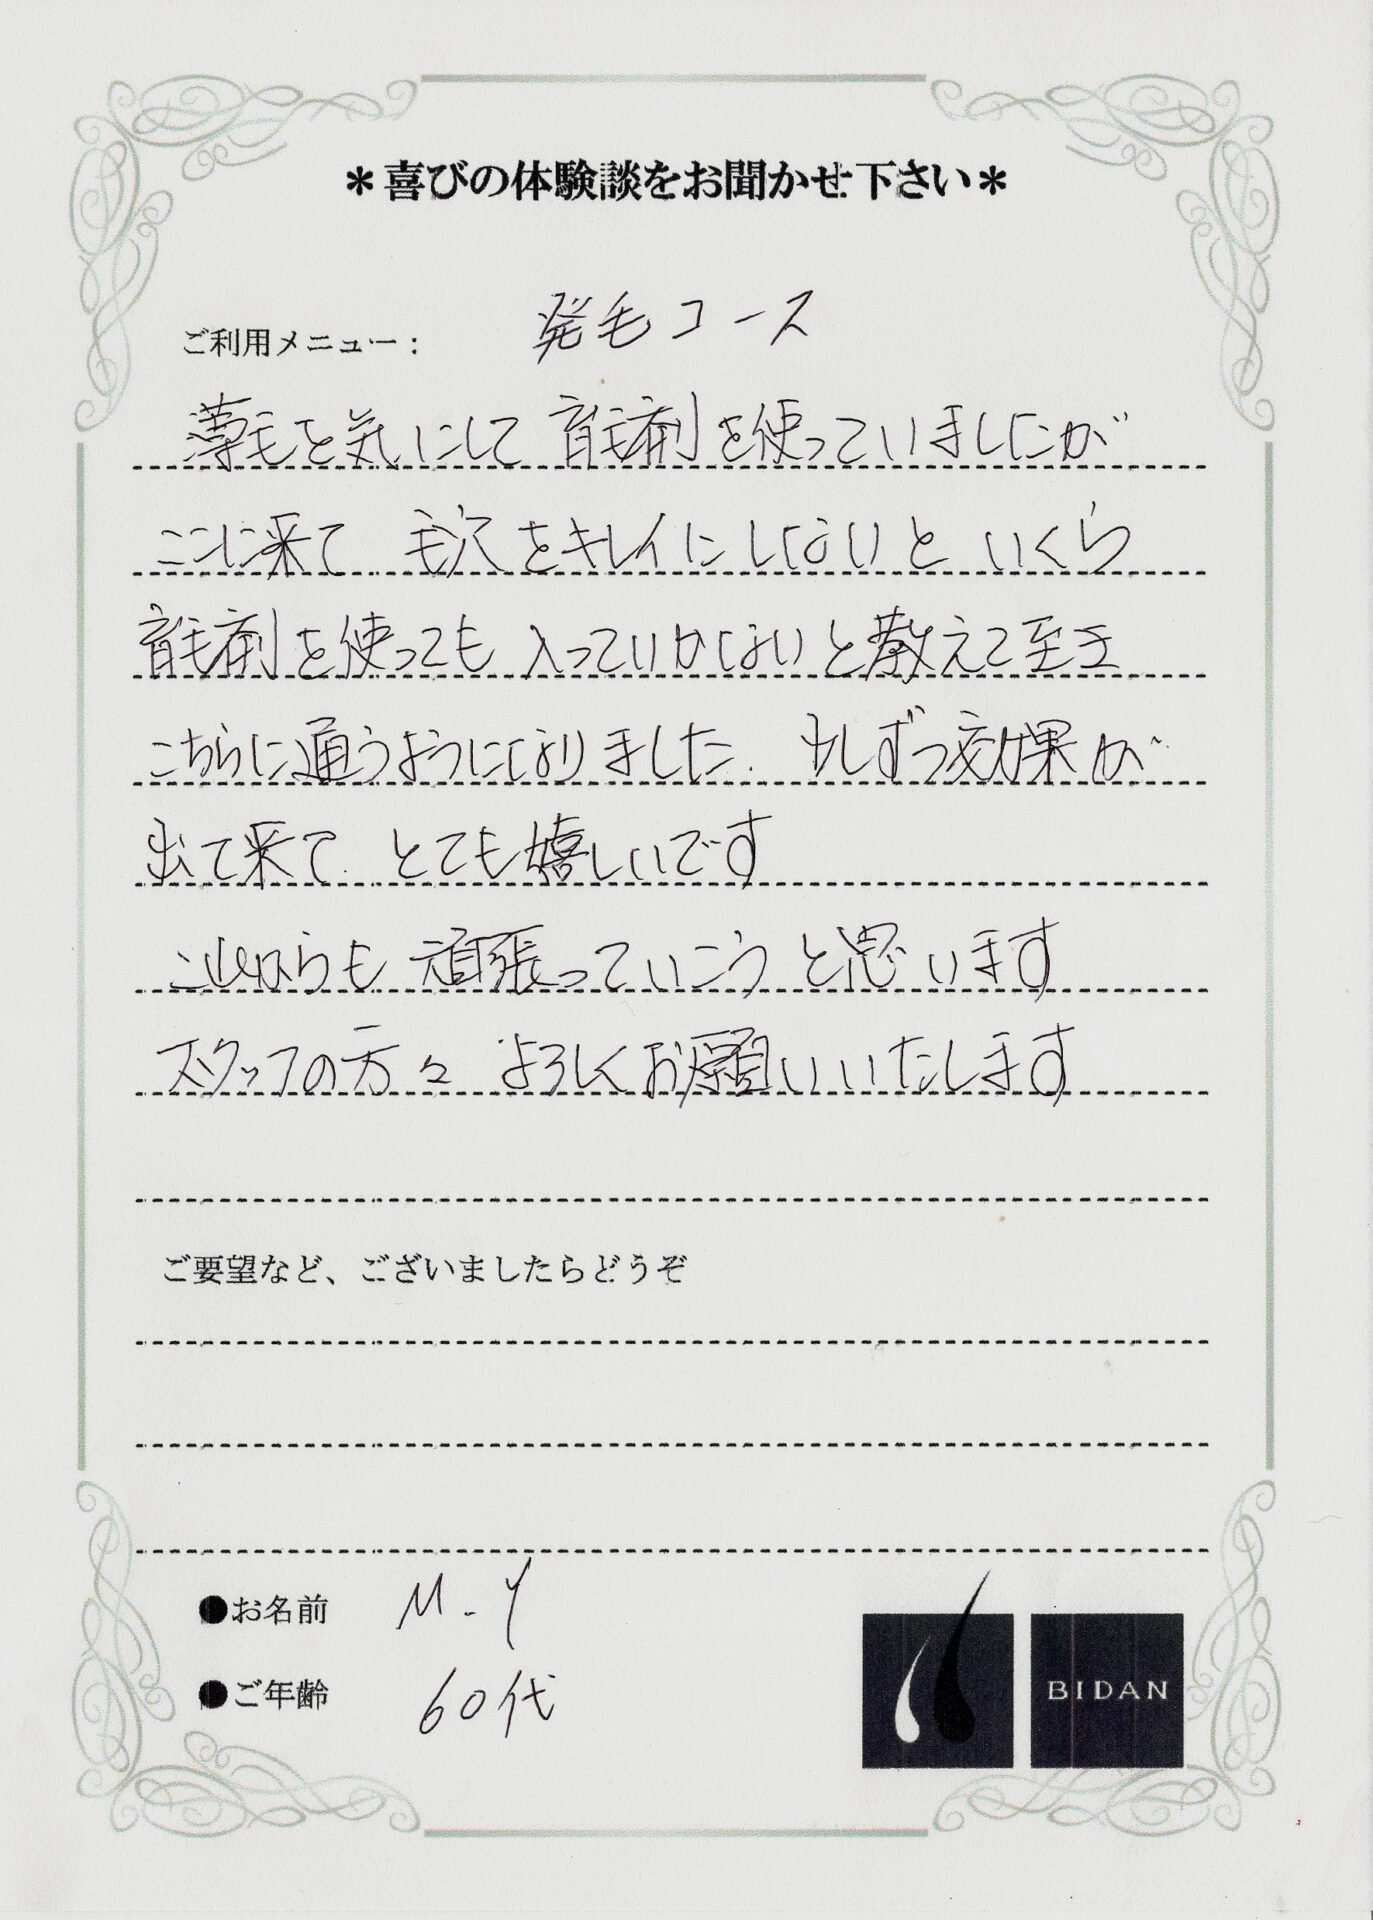 ＊喜びの体験談をお聞かせ下さい＊
ご利用メニュー： 発毛コース
薄毛を気にして 育毛剤を使っていましたが
ここに来て 毛穴をキレイにしないと いくら
育毛剤を使っても 入っていかないと教えて
こちらに通うようになりました. 少しずつ効果が
出て来て とても嬉しいです
これからも 頑張っていこうと思います
スタッフの方々 よろしくお願いいたします
ご要望など、ございましたらどうぞ
●お名前 M.Y
●ご年齢 60代
BIDAN